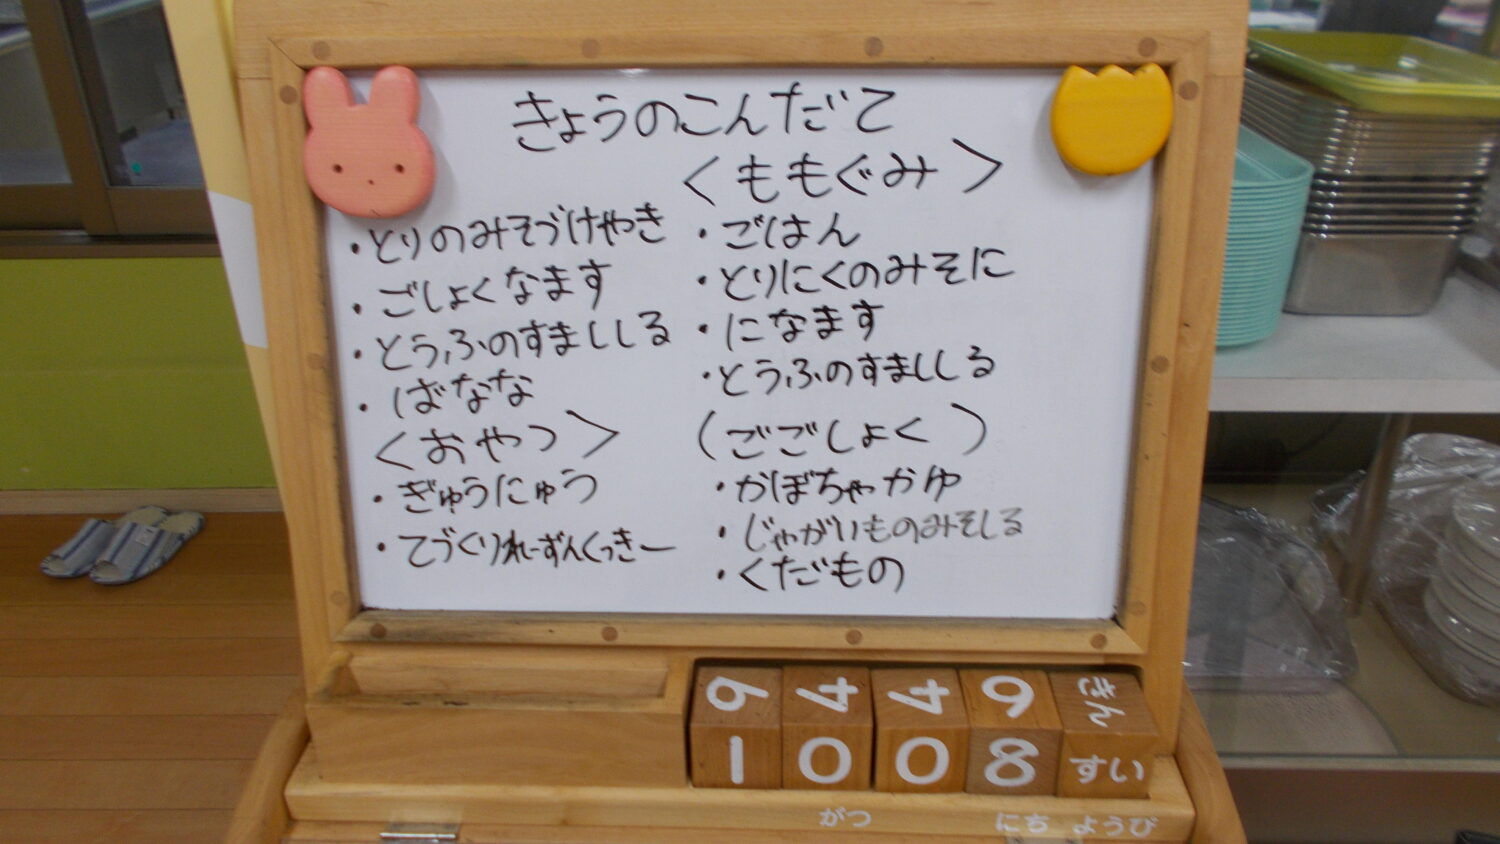 きょうのこんだて
・とりのみそづけやき
・ごしょくなます
・とうふのすましじる
・ばなな
＜おやつ＞
・ぎゅうにゅう
・てづくりれーずんくっきー
＜ももぐみ＞
・ごはん
・とりにくのみそに
・になます
・とうふのすましじる
（ごごしょく）
・かぼちゃかゆ
・じゃがいものみそしる
・くだもの
9 4 4 9 きん
1 0 0 8 すい
がつ にち ようび